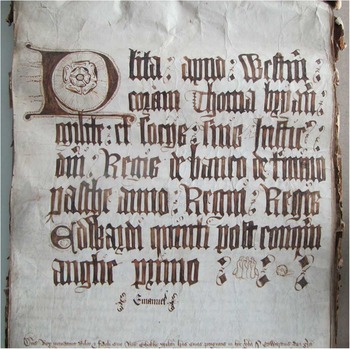 Plita : apud : Westm :
coram Thoma bryan
milite : et Socijs : suis Justic :
dni : Regis de banco de termino
pasche anno : Regni : Regis
Edwardi quinti post conqm
anglie primo :
Emanuel